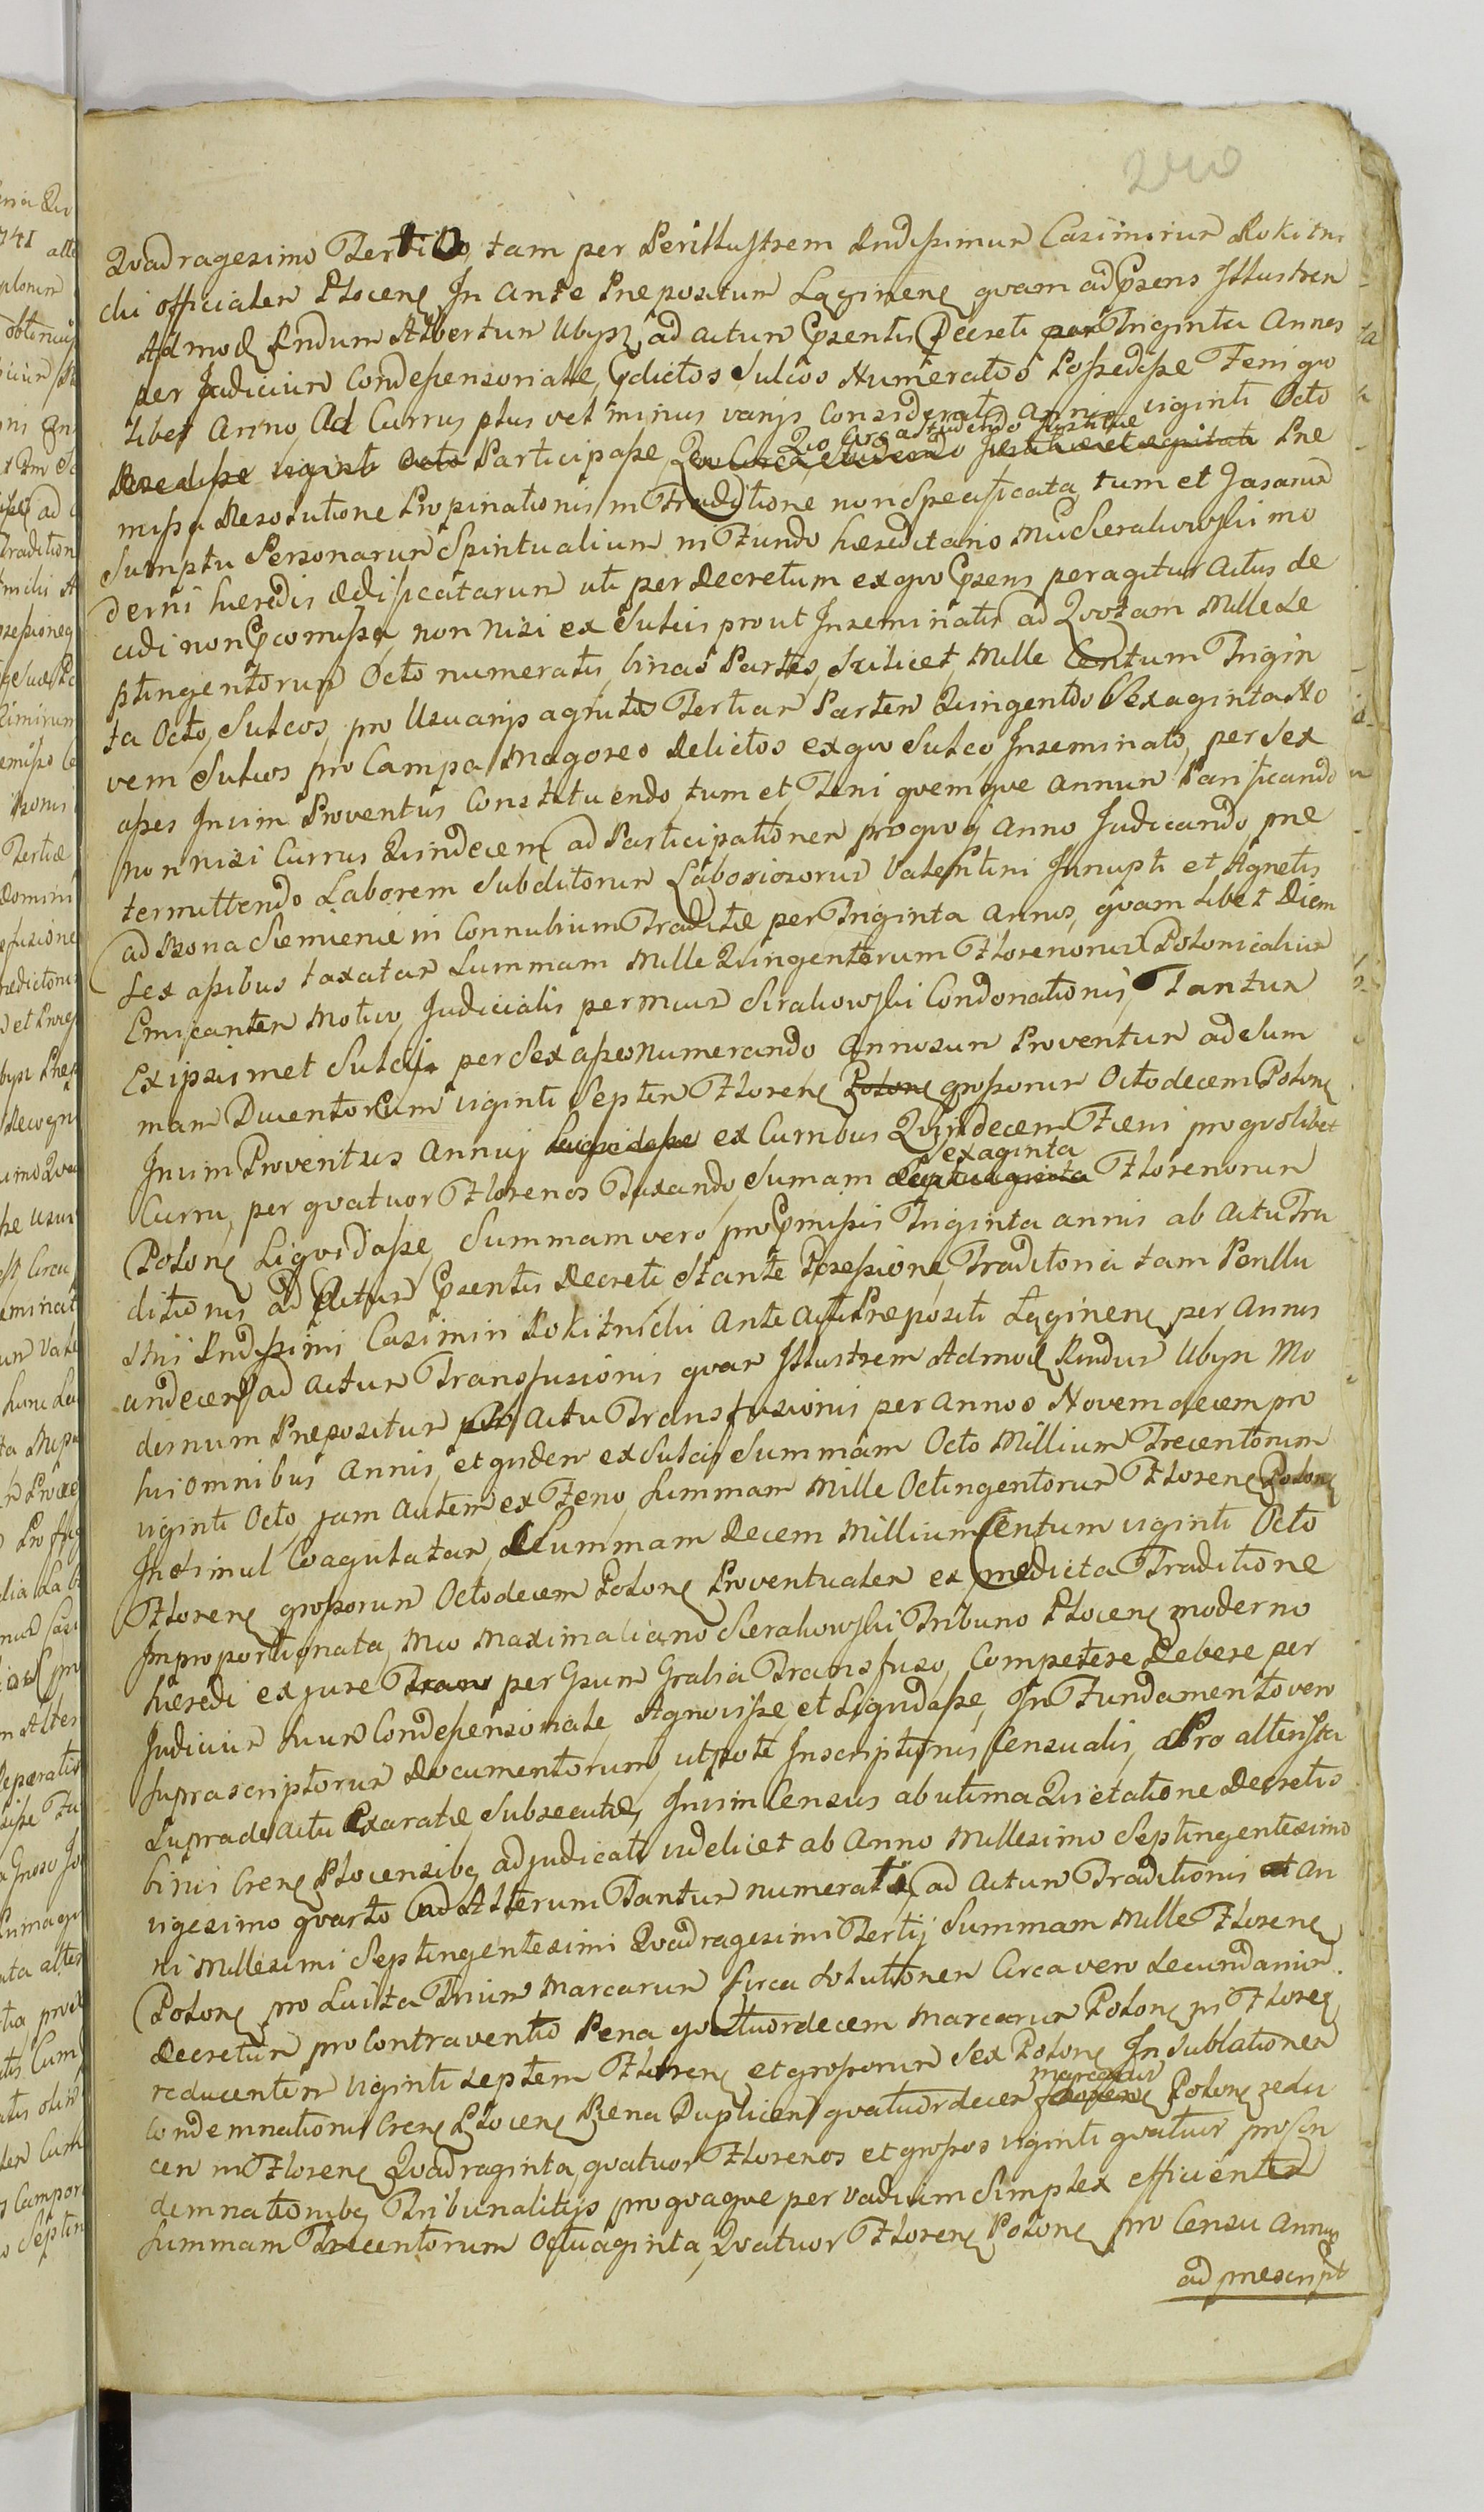 Qvadragesimo Tertio, tam per Perillustrem Rndissimum Casimirum Rokitni
cki officialem Plocens In ante Prepositum Łąginens qvam ad Psens Illustrem
Admod Rndum Albertum Ubysz, ad actum Psentis Decreti per Triginta Annos
per Judicium Condescensoriale, Pdictos Sulcos Numeratos Possedisse Feni qvo
libet Anno, Ad Currus plus vel minus varijs Considerat annis viginti Octo
Participasse, Qvo Circa studendo Justitiæ Pre
missa Resolutione Propinationis in Traditione non Specificata, tum et Jasarum
Sumptu Personarum Spiritualium in Fundo hæreditario Mci Sierakowski mo
derni hæredis ædificatarum uti per Decretum ex qvo Psens peragitur Actus de
cidi non Pcomissa, non nisi ex Sulcis prout Inseminatis ad Qvotam Mille Se
ptingentorum Octo numeratis, binas Partes, Scilicet, Mille Centum Trigin
ta Octo, Sulcos, pro Usuarijs agnitis Tertiam Partem Qvingentos Sexaginta No
vem Sulcos pro Campo Magoreo Relictos ex qvo Sulco, Inseminato, per Sex
asses Inuim Proventus Constituendo, tum et Feni qvemqve annum Parificando
non nisi Currus Qvindecem ad Participationem pro qvoq Anno Judicando, præ
termittendo Laborem Subditorum Laboriosorum Valentini Innupti et Agnetis
ad Bona Siemienie in Connubium Traditæ per Triginta Annos, qvam libet Diem
Sex assibus taxatam Summam Mille Qvingentorum Florenorum Polonicalium
Emicantem Motivo, Judicialis per Mcum Sirakowski Condonationis, Tantum
Ex ipsismet Sulcis per Sex asses Numerando Annosum Proventum ad Sum
mam Ducentorum viginti Septem Florens grossorum Octodecem Polons
Inuim Proventus Annuj ex Curribus Qvindecem Fæni pro qvolibet
Curru, per qvatuor Florenos Taxando, Sumam Sexaginta Florenorum
Polons Liqvidasse, Summam vero pro Pmissis Triginta annis ab Actu Tra
ditionis ad Actum Psentis Decreti, Stante Possessione Traditoria tam Perillu
stris Rndissimi Casimiri Rokitnicki Ante Acti Præpositi Łąginens per Annos
undecem ad actum Transfusionis qvam Illustrem Admod Rndum Ubysz Mo
dernum Prepositum post Actu Transfusionis per Annos Novemdecem pro
his omnibus Annis, et qvidem ex Sulcis Summam Octo Millium Trecentorum
viginti Octo, jam Autem ex Feno, Summam Mille Octingentorum Florens Polons
In Simul Coagulatam, Summam Decem Millium Centum viginti Octo
Florens grossorum Octodecem Polons Proventualem ex Prædicta Traditione
Improportionata, Mco Maximiliano Sierakowski Tribuno Plocens moderno
hæredi ex jure per Gsum Grabia Transfuso, Competere Debere per
Judicium suum Condescensionale Agnovisse, et Liqvidasse, In Fundamento vero
Suprascriptorum Documentorum, utpote Inscriptionis Censualis, Pro alterista
Suprade Actu Exaratæ Subsecutæ, Inuim Census ab ultima Qvietatione Decretis
binis Crens Plocensibq adjudicati videlicet ab Anno Millesimo Septingentesimo
vigesimo qvarto ad Alterum Tantum numerati, ad actum Traditionis An
ni Millesimi Septingentesimi Qvadragesimi Tertij Summam Mille Florens
Polons pro Luita Trium Marcarum Circa Solutionem Circa vero Secundarium
Decretum pro Contraventio Pena qvatuordecem Marcarum Polons in Florens
reducentem Viginti Septem Florens et grossorum Sex Polons In Sublationem
Condemnationis Crens Plocens Pena Duplicem qvatuordecem marcarum Polons redu
cen in Florens Qvadraginta qvatuor Florenos et grossos viginti qvatuor pro Con
demnationibq Tribunalitijs pro qvaqve per vadium Simplex efficientem
Summam Trecentorum Octuaginta, Qvatuor Florens Polons pro Censu Annuo
ad præscript